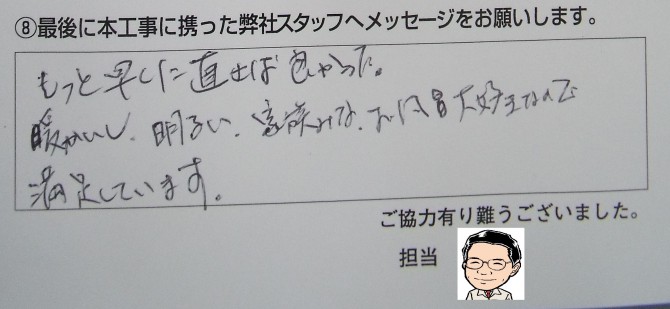 ⑧最後に本工事に携った弊社スタッフへメッセージをお願いします。
もっと早くに直せば良かった。
暖かいし、明るい、家族みな、お風呂大好きなので
満足しています。
ご協力有り難うございました。
担当